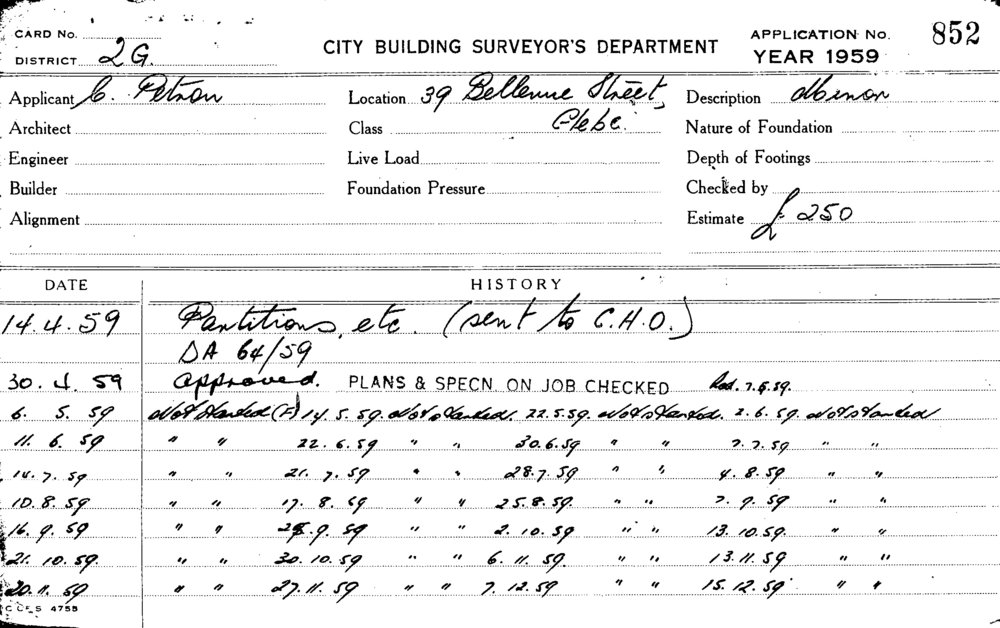 CARD No.
DISTRICT 2G.
CITY BUILDING SURVEYOR'S DEPARTMENT
APPLICATION No. 852
YEAR 1959
Applicant C. Petron Location 39 Bellevue Street, Description Minor
Architect Class Glebe. Nature of Foundation
Engineer Live Load Depth of Footings
Builder Foundation Pressure Checked by
Alignment Estimate £ 250
DATE HISTORY
14.4.59 Partitions, etc. (sent to C.H.O.)
DA 64/59
30.4.59 Approved. PLANS & SPECN ON JOB CHECKED 7.5.59.
6.5.59 Not started (F) 14.5.59. Not started. 22.5.59. Not started. 2.6.59. Not started
11.6.59 " " 22.6.59 " " 30.6.59 " " 7.7.59 " "
14.7.59 " " 21.7.59 " " 28.7.59 " " 4.8.59 " "
10.8.59 " " 17.8.59 " " 25.8.59. " " 7.9.59 " "
16.9.59 " " 25.9.59 " " 2.10.59 " " 13.10.59. " "
21.10.59. " " 30.10.59 " " 6.11.59. " " 13.11.59 " "
20.11.59 " " 27.11.59 " " 7.12.59 " " 15.12.59 " "
CCFS 4755